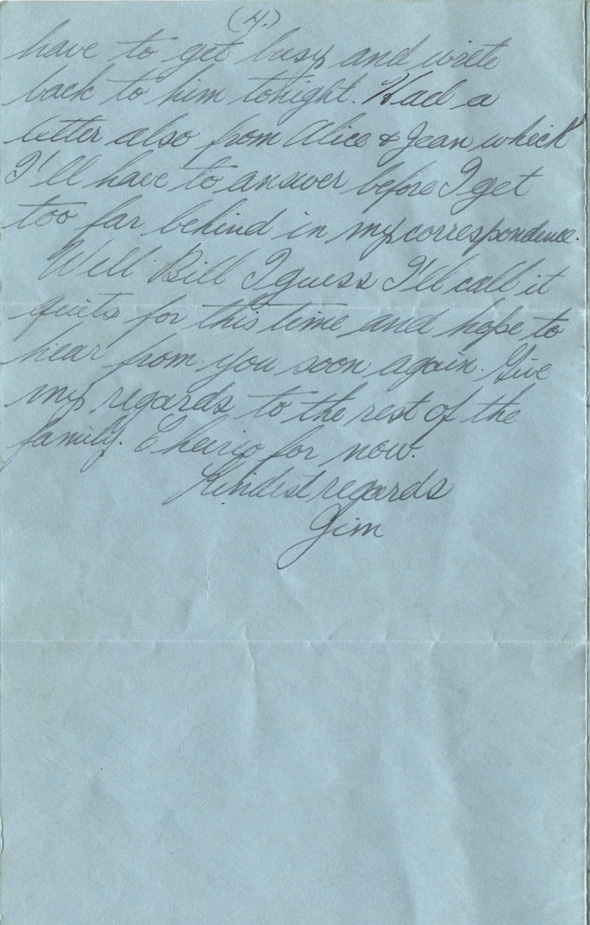 (4.)
have to get busy and write
back to him tonight. Had a
letter also from Alice & Jean which
I'll have to answer before I get
too far behind in my correspondence.
Well Bill I guess I'll call it
quits for this time and hope to
hear from you soon again. Give
my regards to the rest of the
family. Cheirio for now.
Kindest regards
Jim